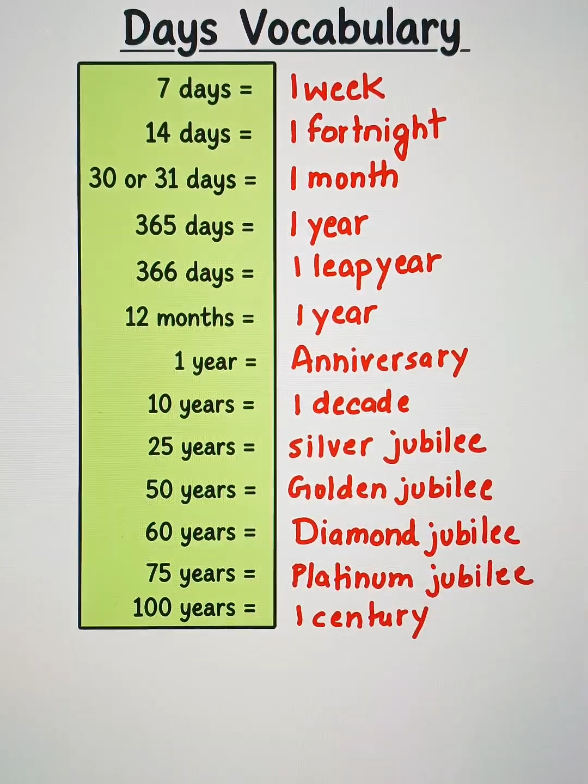 Days Vocabulary
7 days = 1 week
14 days = 1 fortnight
30 or 31 days = 1 month
365 days = 1 year
366 days = 1 leap year
12 months = 1 year
1 year = Anniversary
10 years = 1 decade
25 years = silver jubilee
50 years = Golden jubilee
60 years = Diamond jubilee
75 years = Platinum jubilee
100 years = 1 century